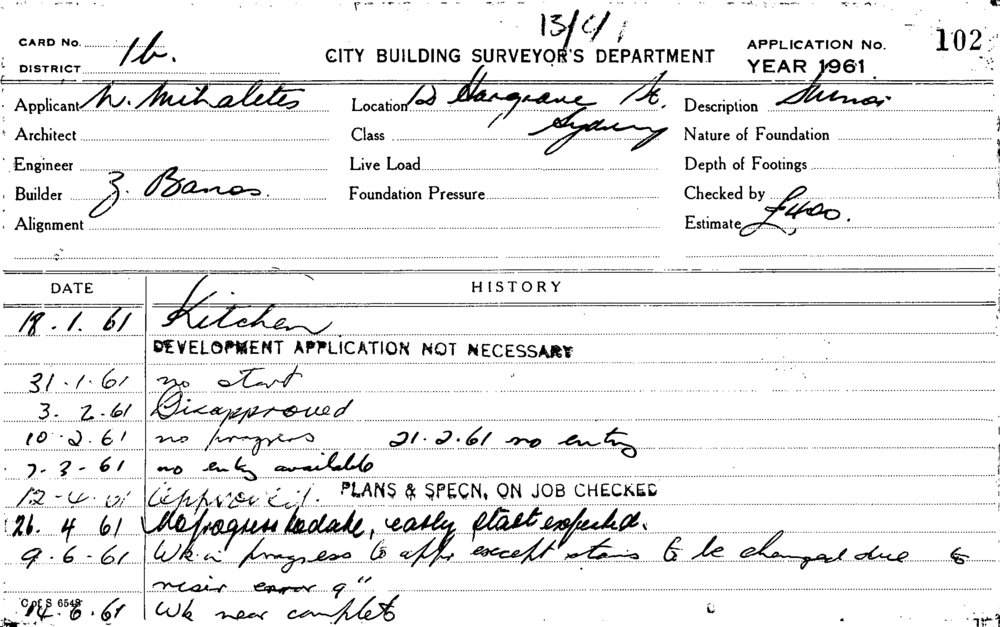 13/4/
CARD No. 16.
DISTRICT
CITY BUILDING SURVEYOR'S DEPARTMENT
APPLICATION No. 102
YEAR 1961
Applicant N. Mihaletes
Location Hargrave St. Sydney
Description
Architect
Class
Nature of Foundation
Engineer
Live Load
Depth of Footings
Builder Z. Banos.
Foundation Pressure
Checked by
Alignment
Estimate £400.
DATE HISTORY
18.1.61 Kitchen
DEVELOPMENT APPLICATION NOT NECESSARY
31.1.61 no start
3.2.61 Disapproved
10.2.61 no progress 21.2.61 no entry
7-3-61 no entry available
12-4-61 Approved. PLANS & SPECN, ON JOB CHECKED
26.4 61 No progress to date, early start expected.
9-6-61 Wk in progress to appr except stairs to be changed due to
riser error 9"
C of S 6548
14.6.61 Wk near complete